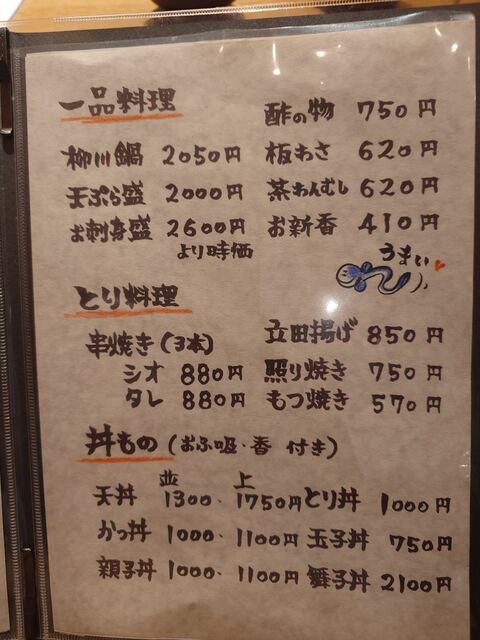 一品料理
柳川鍋 2050円
天ぷら盛 2000円
お刺身盛 2600円
より時価
酢の物 750円
板わさ 620円
茶わんむし 620円
お新香 410円
うまい
とり料理
串焼き(3本)
シオ 880円
タレ 880円
立田揚げ 850円
照り焼き 750円
もつ焼き 570円
丼もの(おふ吸・香 付き)
並 上
天丼 1300・1750円
かつ丼 1000・1100円
親子丼 1000・1100円
とり丼 1000円
玉子丼 750円
舞子丼 2100円